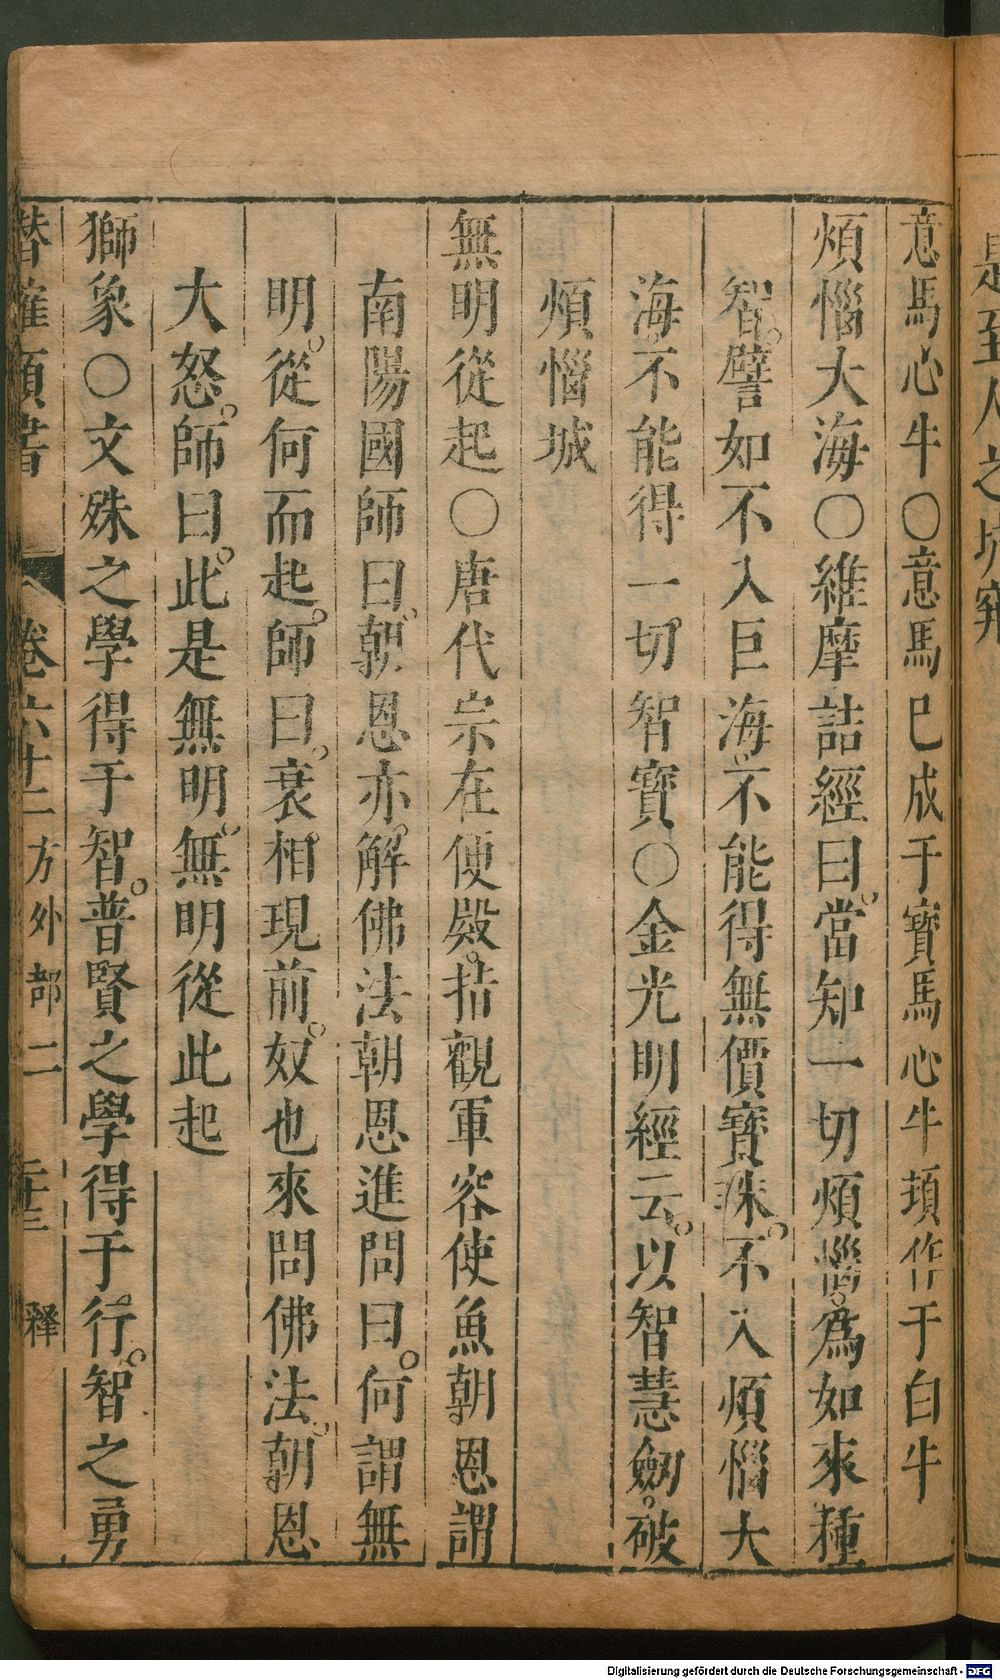 是至人之坑穽
意馬心牛○意馬巳成于寶馬心牛頓作于白牛
煩惱大海○維摩詰經曰當知一切煩惱爲如來種
智譬如不入巨海不能得無價寶珠不入煩惱大
海不能得一切智寶○金光明經云以智慧劒破
煩惱城
無明從起○唐代宗在便殿指觀軍容使魚朝恩謂
南陽國師曰朝恩亦解佛法朝恩進問曰何謂無
明從何而起師曰衰相現前奴也來問佛法朝恩
大怒師曰此是無明無明從此起
獅象○文殊之學得于智普賢之學得于行智之勇
潛確類書 卷六十二 方外部二 二十三 釋
Digitalisierung gefördert durch die Deutsche Forschungsgemeinschaft - DFG